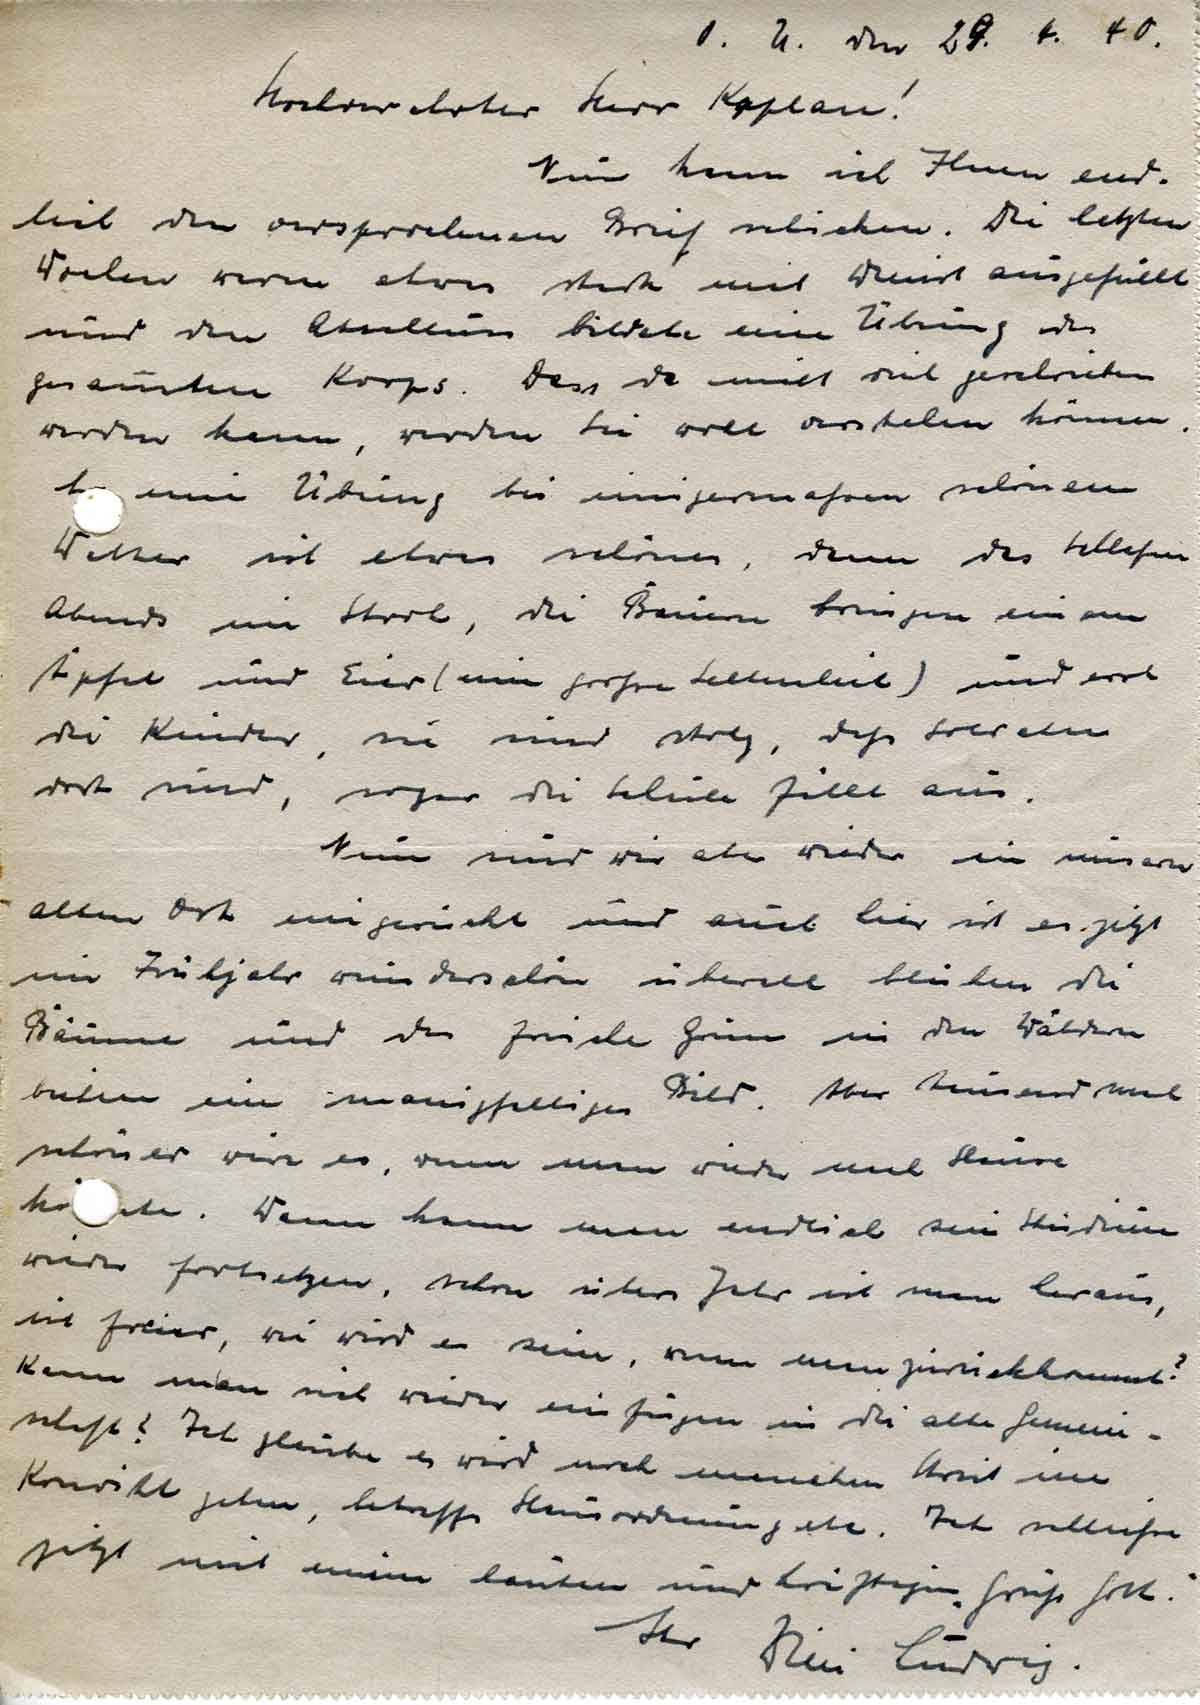 O. U. den 29. 4. 40.
Hochverehrter Herr Kaplan!
Nun kann ich Ihnen end-
lich den versprochenen Brief schicken. Die letzten
Wochen waren etwas stark mit Dienst ausgefüllt
und den Abschluss bildete eine Übung des
gesamten Korps. Dass da nicht viel geschrieben
werden kann, werden Sie wohl verstehen können.
eine Übung bei einigermaßen schönem
Wetter ist etwas schönes, denn das Schlafen
Abends im Stroh, die Bauern bringen einem
Äpfel und Eier (eine große Seltenheit) und erst
die Kinder, sie sind stolz, daß Soldaten
dort sind, sogar die Schule fällt aus.
Nun sind wir aber wieder in unserem
alten Ort eingerückt und auch hier ist es jetzt
im Frühjahr wunderschön überall blühen die
Bäume und das frische Grün in den Wäldern
bieten ein manigfaltiges Bild. Aber tausend mal
schöner wäre es, wenn man wieder nach Hause
könnte. Wann kann man endlich sein Studium
wieder fortsetzen, schon übers Jahr ist man heraus,
ist freier, wie wird es sein, wenn man zurückkommt?
Kann man sich wieder einfügen in die alte Gemein-
schaft? Ich glaube es wird noch manchen Streit im
Konvikt geben, betreffs Hausordnung etc. Ich schließe
jetzt mit einem lauten und kräftigen „Grüß Gott."
Ihr Ludwig.